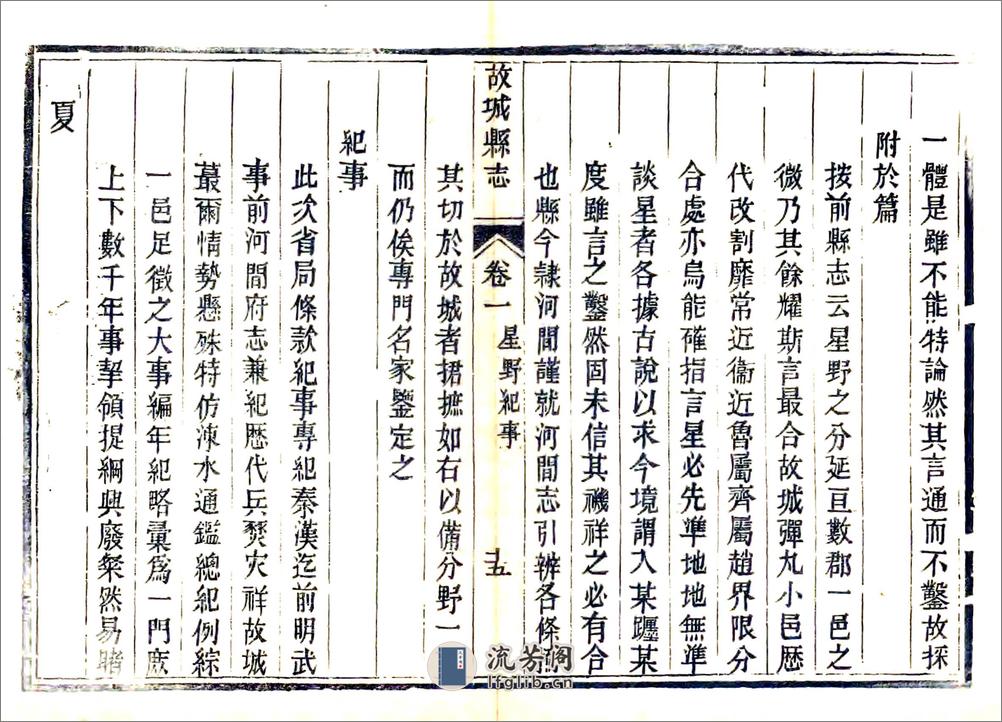 一體是雖不能特論然其言通而不鑿故採
附於篇
按前縣志云星野之分延亘數郡一邑之
微乃其餘耀斯言最合故城彈丸小邑歴
代改割靡常近衞近魯屬齊屬趙界限分
合處亦烏能確指言星必先準地地無準
談星者各據古說以求今境謂入某躔某
度雖言之鑿然固未信其禨祥之必有合
也縣今隸河間謹就河間志引辨各條
故城縣志
卷一
星野紀事
十五
其切於故城者捃摭如右以備分野一
而仍俟專門名家鑒定之
紀事
此次省局條款紀事專紀秦漢迄前明武
事前河間府志兼紀歴代兵燹灾祥故城
蕞爾情勢懸殊特仿涑水通鑑總紀例綜
一邑足徵之大事編年紀略彙爲一門庶
上下數千年事挈領提綱興廢粲然易睹
夏
流芳阁
lfglib.cn